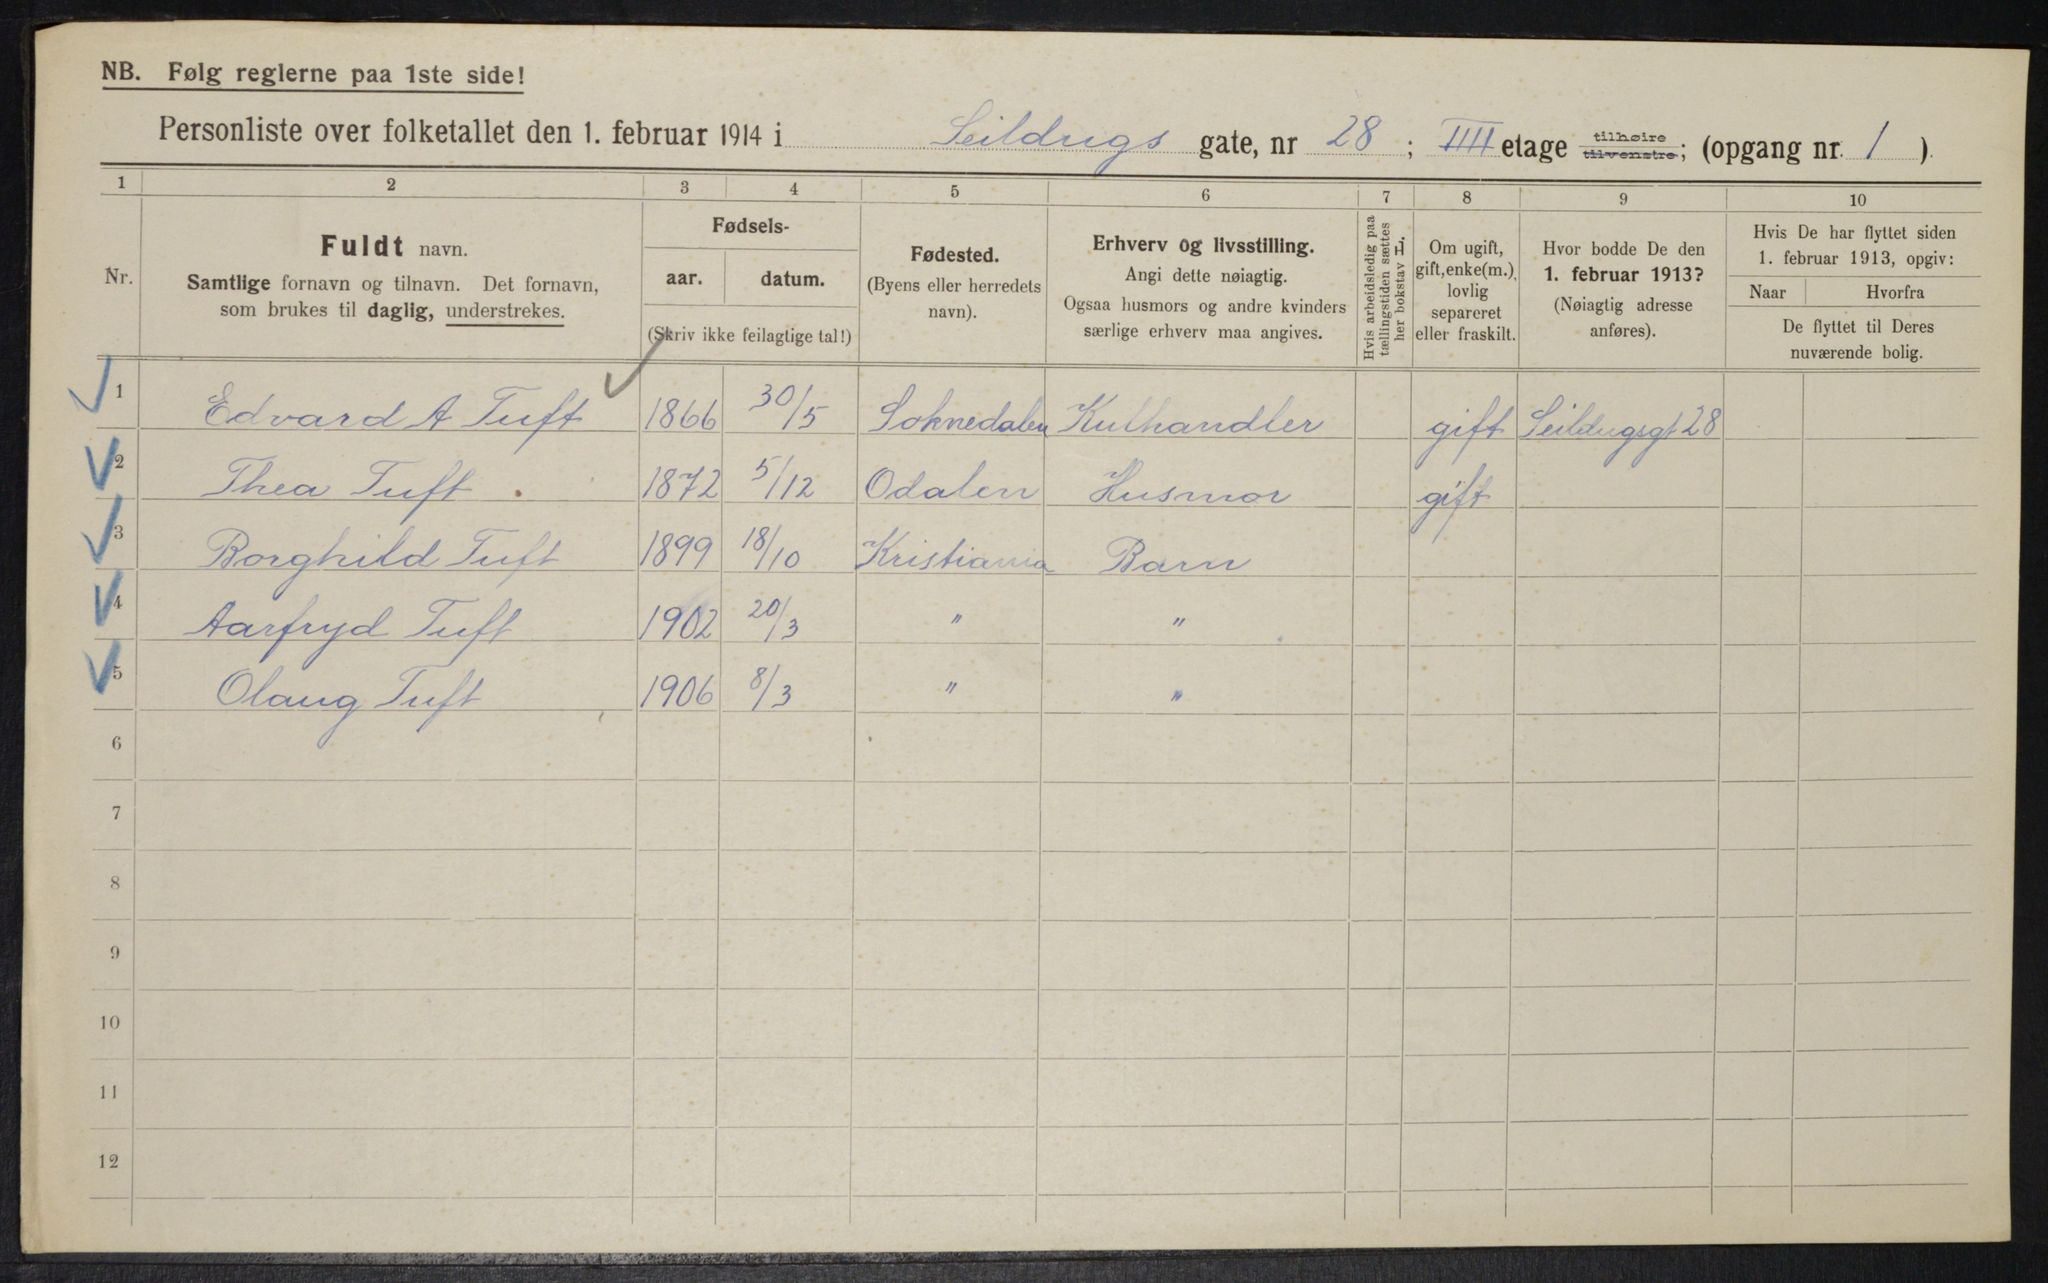 NB. Følg reglerne paa 1ste side!
Personliste over folketallet den 1. februar 1914 i Seildugs gate, nr 28 ; IIII etage tilhøire tilvenstre; (opgang nr. 1 ).
1 2 3 4 5 6 7 8 9 10
Nr.
Fuldt navn.
Samtlige fornavn og tilnavn. Det fornavn,
som brukes til daglig, understrekes.
Fødsels-
aar. datum.
(Skriv ikke feilagtige tal!)
Fødested.
(Byens eller herredets
navn).
Erhverv og livsstilling.
Angi dette nøiagtig.
Ogsaa husmors og andre kvinders
særlige erhverv maa angives.
Hvis arbeidsledig paa
tællingstiden sættes
her bokstav L.
Om ugift,
gift, enke(m.),
lovlig
separeret
eller fraskilt.
Hvor bodde De den
1. februar 1913?
(Nøiagtig adresse
anføres).
Hvis De har flyttet siden
1. februar 1913, opgiv:
Naar Hvorfra
De flyttet til Deres
nuværende bolig.
1 Edvard A Tuft 1866 30/5 Soknedalen Kulhandler gift Seildugsgt 28
2 Thea Tuft 1872 5/12 Odalen Husmor gift
3 Borghild Tuft 1899 18/10 Kristiania Barn
4 Aarfryd Tuft 1902 20/3 " "
5 Olaug Tuft 1906 8/3 " "
6
7
8
9
10
11
12